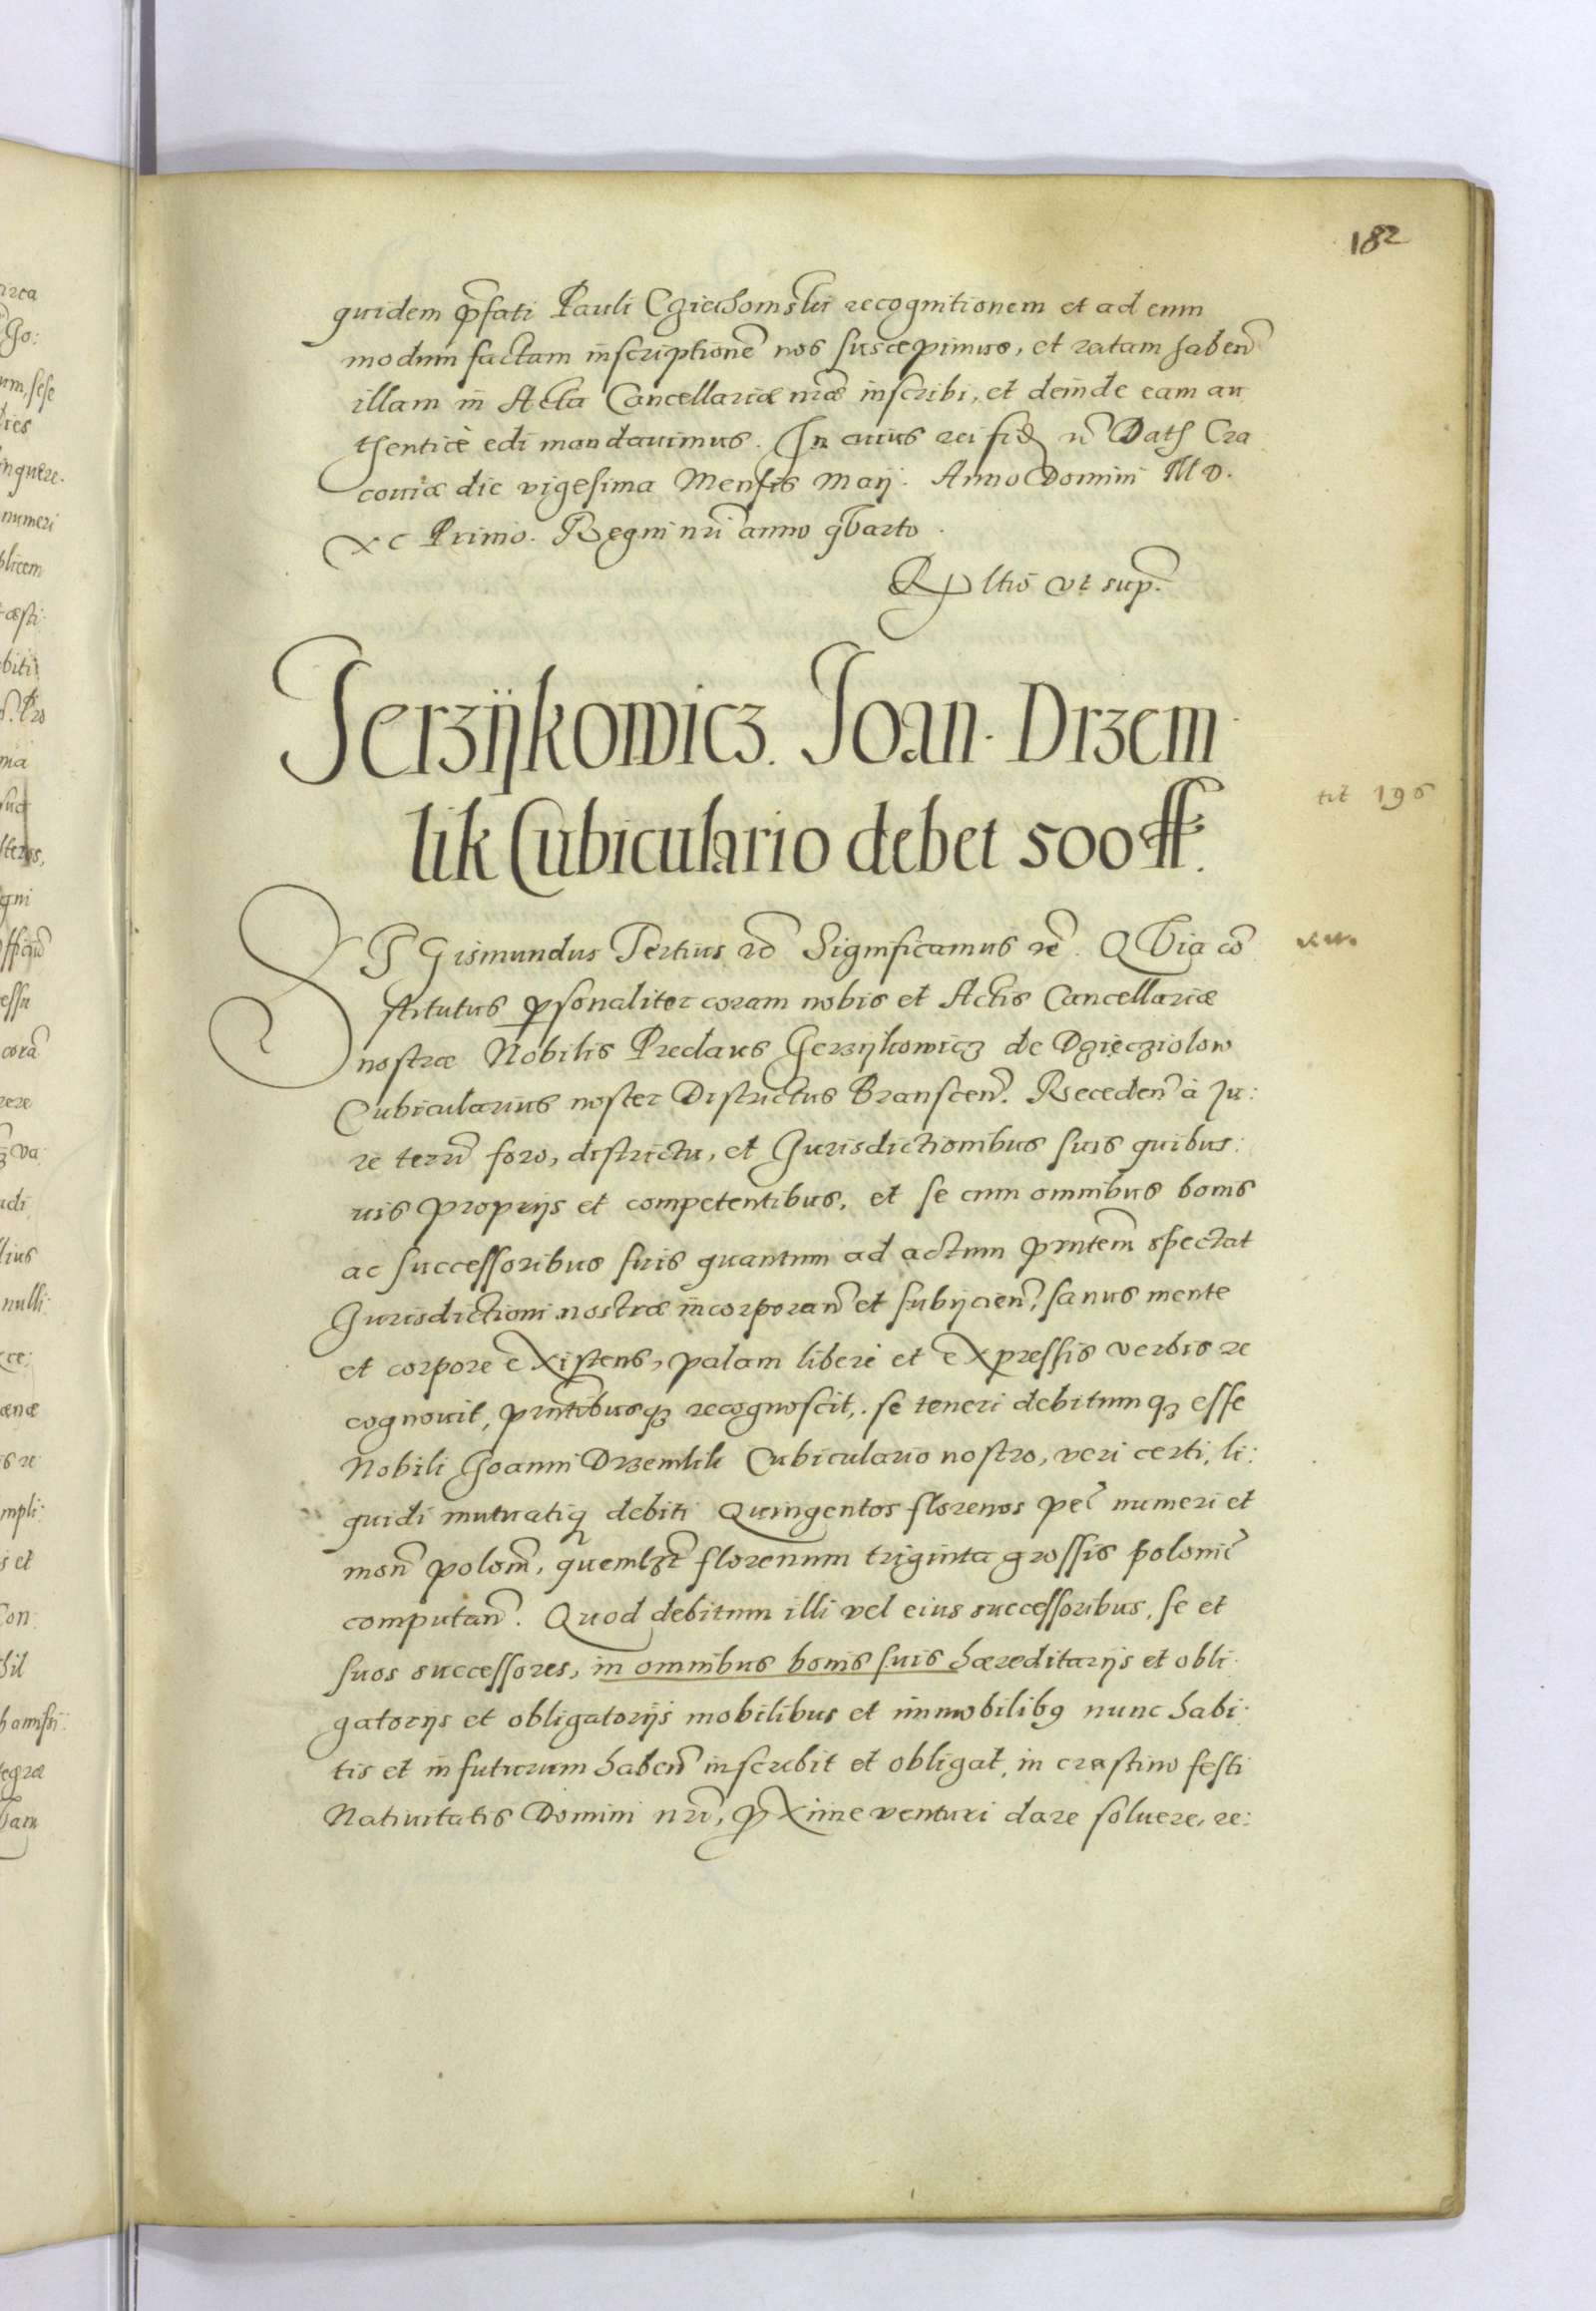 182
quidem p̃fati Pauli Cziechomski recognitionem et ad eum
modum factam inscriptionẽ nos suscepimus, et ratam habeñ
illam in Acta Cancellariæ nr̃æ inscribi, et deinde eam au
thenticè edi mandauimus. In cuius rei fid ꝛc̃ Dath Cra
couiæ die vigesima Mensis Maij. Anno Domini MD.
XC Primo. Regni nr̃i anno qUarto.
Rltio vt sup.
Jerzijkowicz. Joan. Drzem
lik Cubiculario debet 500 ff.
tit 196
SIGismundus Tertius ꝛc̃ Significamus ꝛc̃. QUia cõ
stitutus ꝑsonaliter coram nobis et Actis Cancellariæ
nostræ Nobilis Predaus Gerzijkowicz de Dzięcziolow
Cubicularius noster Districtus Branscen̄. Receden̄ à Ju:
re terr̃ foro, districtu, et Jurisdictionibus suis quibus:
uis proprijs et competentibus, et se cum omnibus bonis
ac successoribus suis quantum ad actum p̃ntem spectat
Jurisdictioni nostræ incorporan̄ et subijcien̄, sanus mente
et corpore eXistens, palam liberè et eXpressis verbis re
cognouit, p̃ntibusqꝫ recognoscit, se teneri debitumqꝫ esse
Nobili Joanni Drzemlik Cubiculario nostro, veri certi, li:
quidi mutuatiqꝫ debiti Quingentos florenos pec̃ numeri et
mon̄ polonic̃, quemlꝫt florenum triginta grossis polonic̃
computan̄. Quod debitum illi vel eius successoribus, se et
suos successores, in omnibus bonis suis hæreditarijs et obli
gatorijs et obligatorijs mobilibus et immobilibꝫ nunc habi:
tis et in futurum haben̄ inscribit et obligat, in crastino festi
Natiuitatis Domini nr̃i, ꝓXime venturi dare soluere, re: